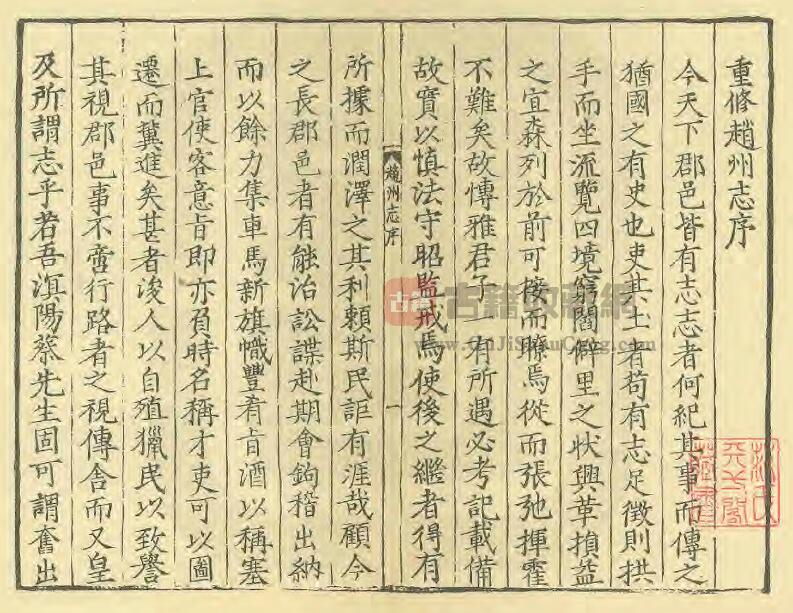 重修趙州志序
今天下郡邑皆有志志者何紀其事而傳之
猶國之有史也吏其土者苟有志足徵則拱
手而坐流覽四境窮閻僻里之狀興革損益
之宜森列於前可接而瞭焉從而張弛揮霍
不難矣故愽雅君子一有所遇必考記載備
故實以慎法守昭監戒焉使後之繼者得有
趙州志序
一
所據而潤澤之其利賴斯民詎有涯哉顧今
之長郡邑者有能治訟諜赴期會鉤稽出納
而以餘力集車馬新旗幟豐肴旨酒以稱塞
上官使客意旨即亦負時名稱才吏可以圖
遷而冀進矣甚者浚人以自殖獵民以致譽
其視郡邑事不啻行路者之視傳舍而又皇
及所謂志乎若吾滇陽蔡先生固可謂奮出
古籍收藏網
范氏天一閣藏書